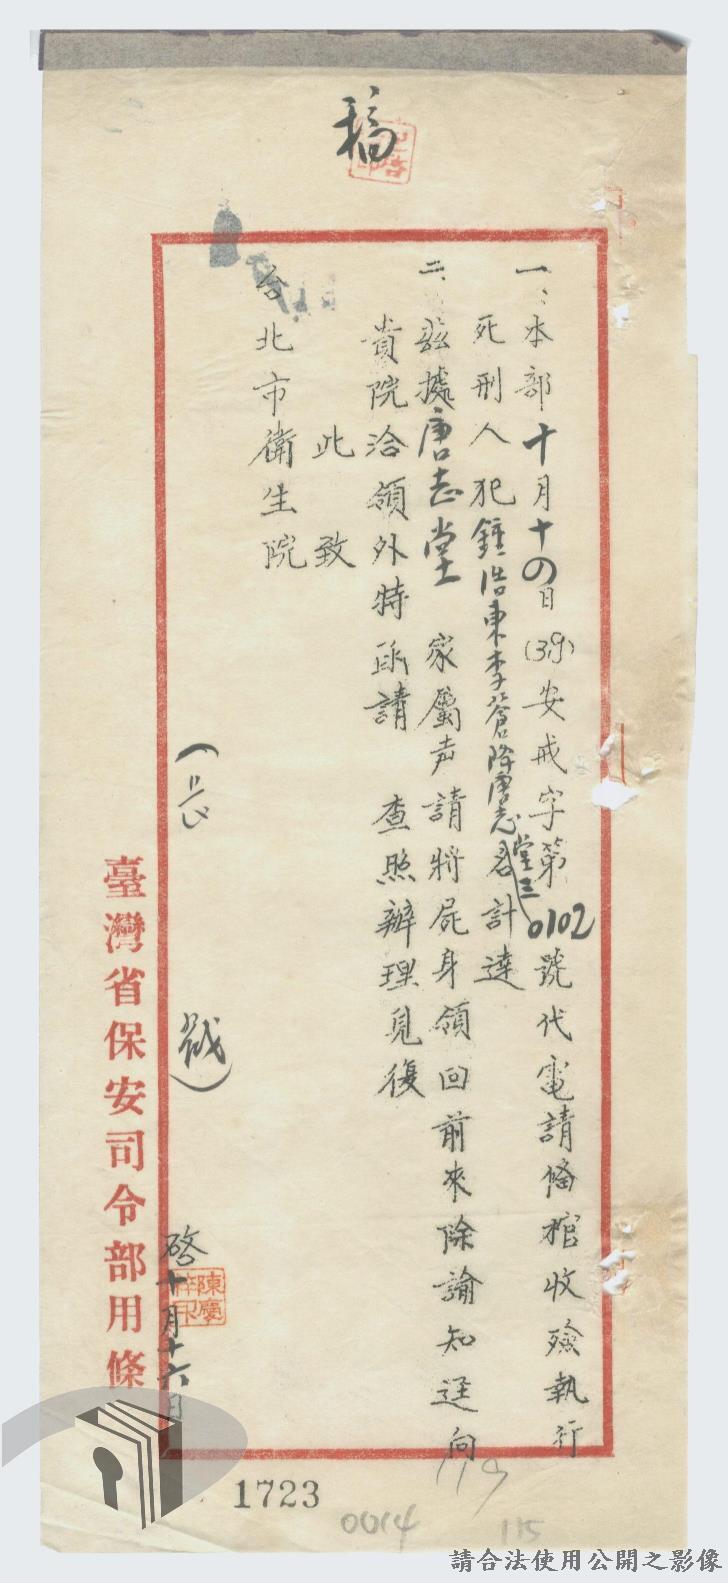 稿
一、本部十月十四日(39)安戒字第0102號代電請備棺收殮執行
死刑人犯鍾浩東李蒼降唐志堂三名計達
二、茲據唐志堂 家屬声請將屍身領回前來除諭知逕向
貴院洽領外特函請 查照辦理見復
此致
台北市衛生院
(  戳)
啓十月十六日
臺灣省保安司令部用條
1723
0014
115
119
請合法使用公開之影像